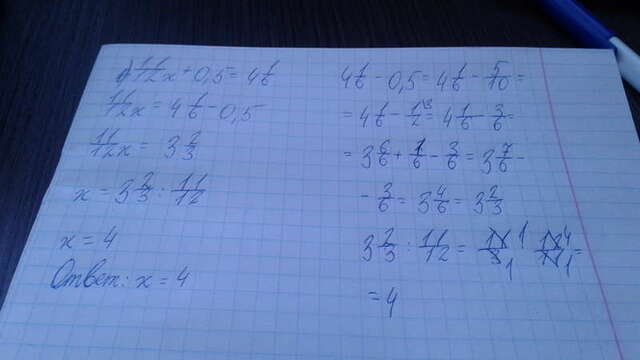 в) 11/12 x + 0,5 = 4 1/6
11/12 x = 4 1/6 - 0,5
11/12 x = 3 2/3
x = 3 2/3 : 11/12
x = 4
Ответ: x = 4
4 1/6 - 0,5 = 4 1/6 - 5/10 =
= 4 1/6 - 1/2 ^3 = 4 1/6 - 3/6 =
= 3 6/6 + 1/6 - 3/6 = 3 7/6 -
- 3/6 = 3 4/6 = 3 2/3
3 2/3 : 11/12 = 11 1/3 1 · 12 4/11 1 =
= 4